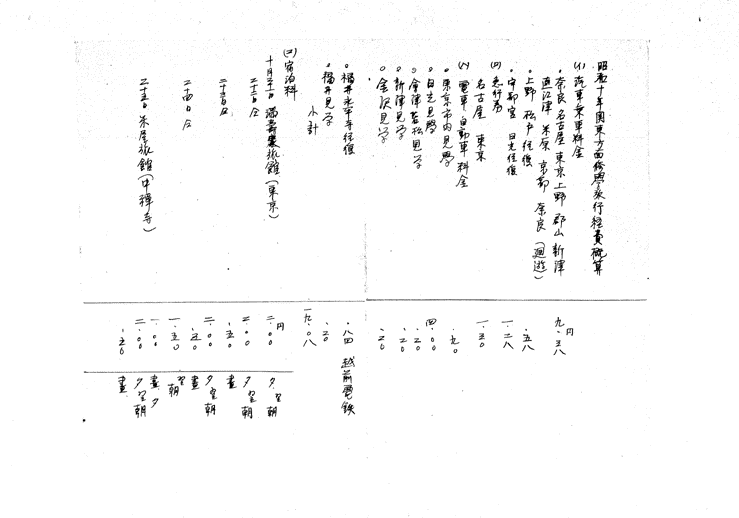 昭和十年関東方面修学旅行経費概算
(イ) 汽車乗車料金
・奈良 名古屋 東京 上野 郡山 新津
直江津 米原 京都 奈良 (廻遊) 九.三八円
・上野 松戸 往復 .五八
・宇都宮 日光往復 一.二八
(ロ) 急行券
名古屋 東京 一.三〇
(ハ) 電車自動車料金
・東京市内見学 .九〇
・日光見学 四.〇〇
・会津若松見学 .二〇
・新津見学 .二〇
・金沢見学 .二〇
・福井永平寺往復 .八四 越前電鉄
・福井見学 .二〇
小計 一九.〇八
(二) 宿泊料 円
十月二十一日 旅館(東京) 二.〇〇 夕、翌朝
.五〇 昼
二十二日 仝 二.〇〇 夕、翌朝
.五〇 昼
二十三日 仝 二.〇〇 夕、翌朝
.五〇 昼
二十四日 仝
二十五日 米屋旅館(中禅寺) 二.〇〇 夕、翌朝
.五〇 昼